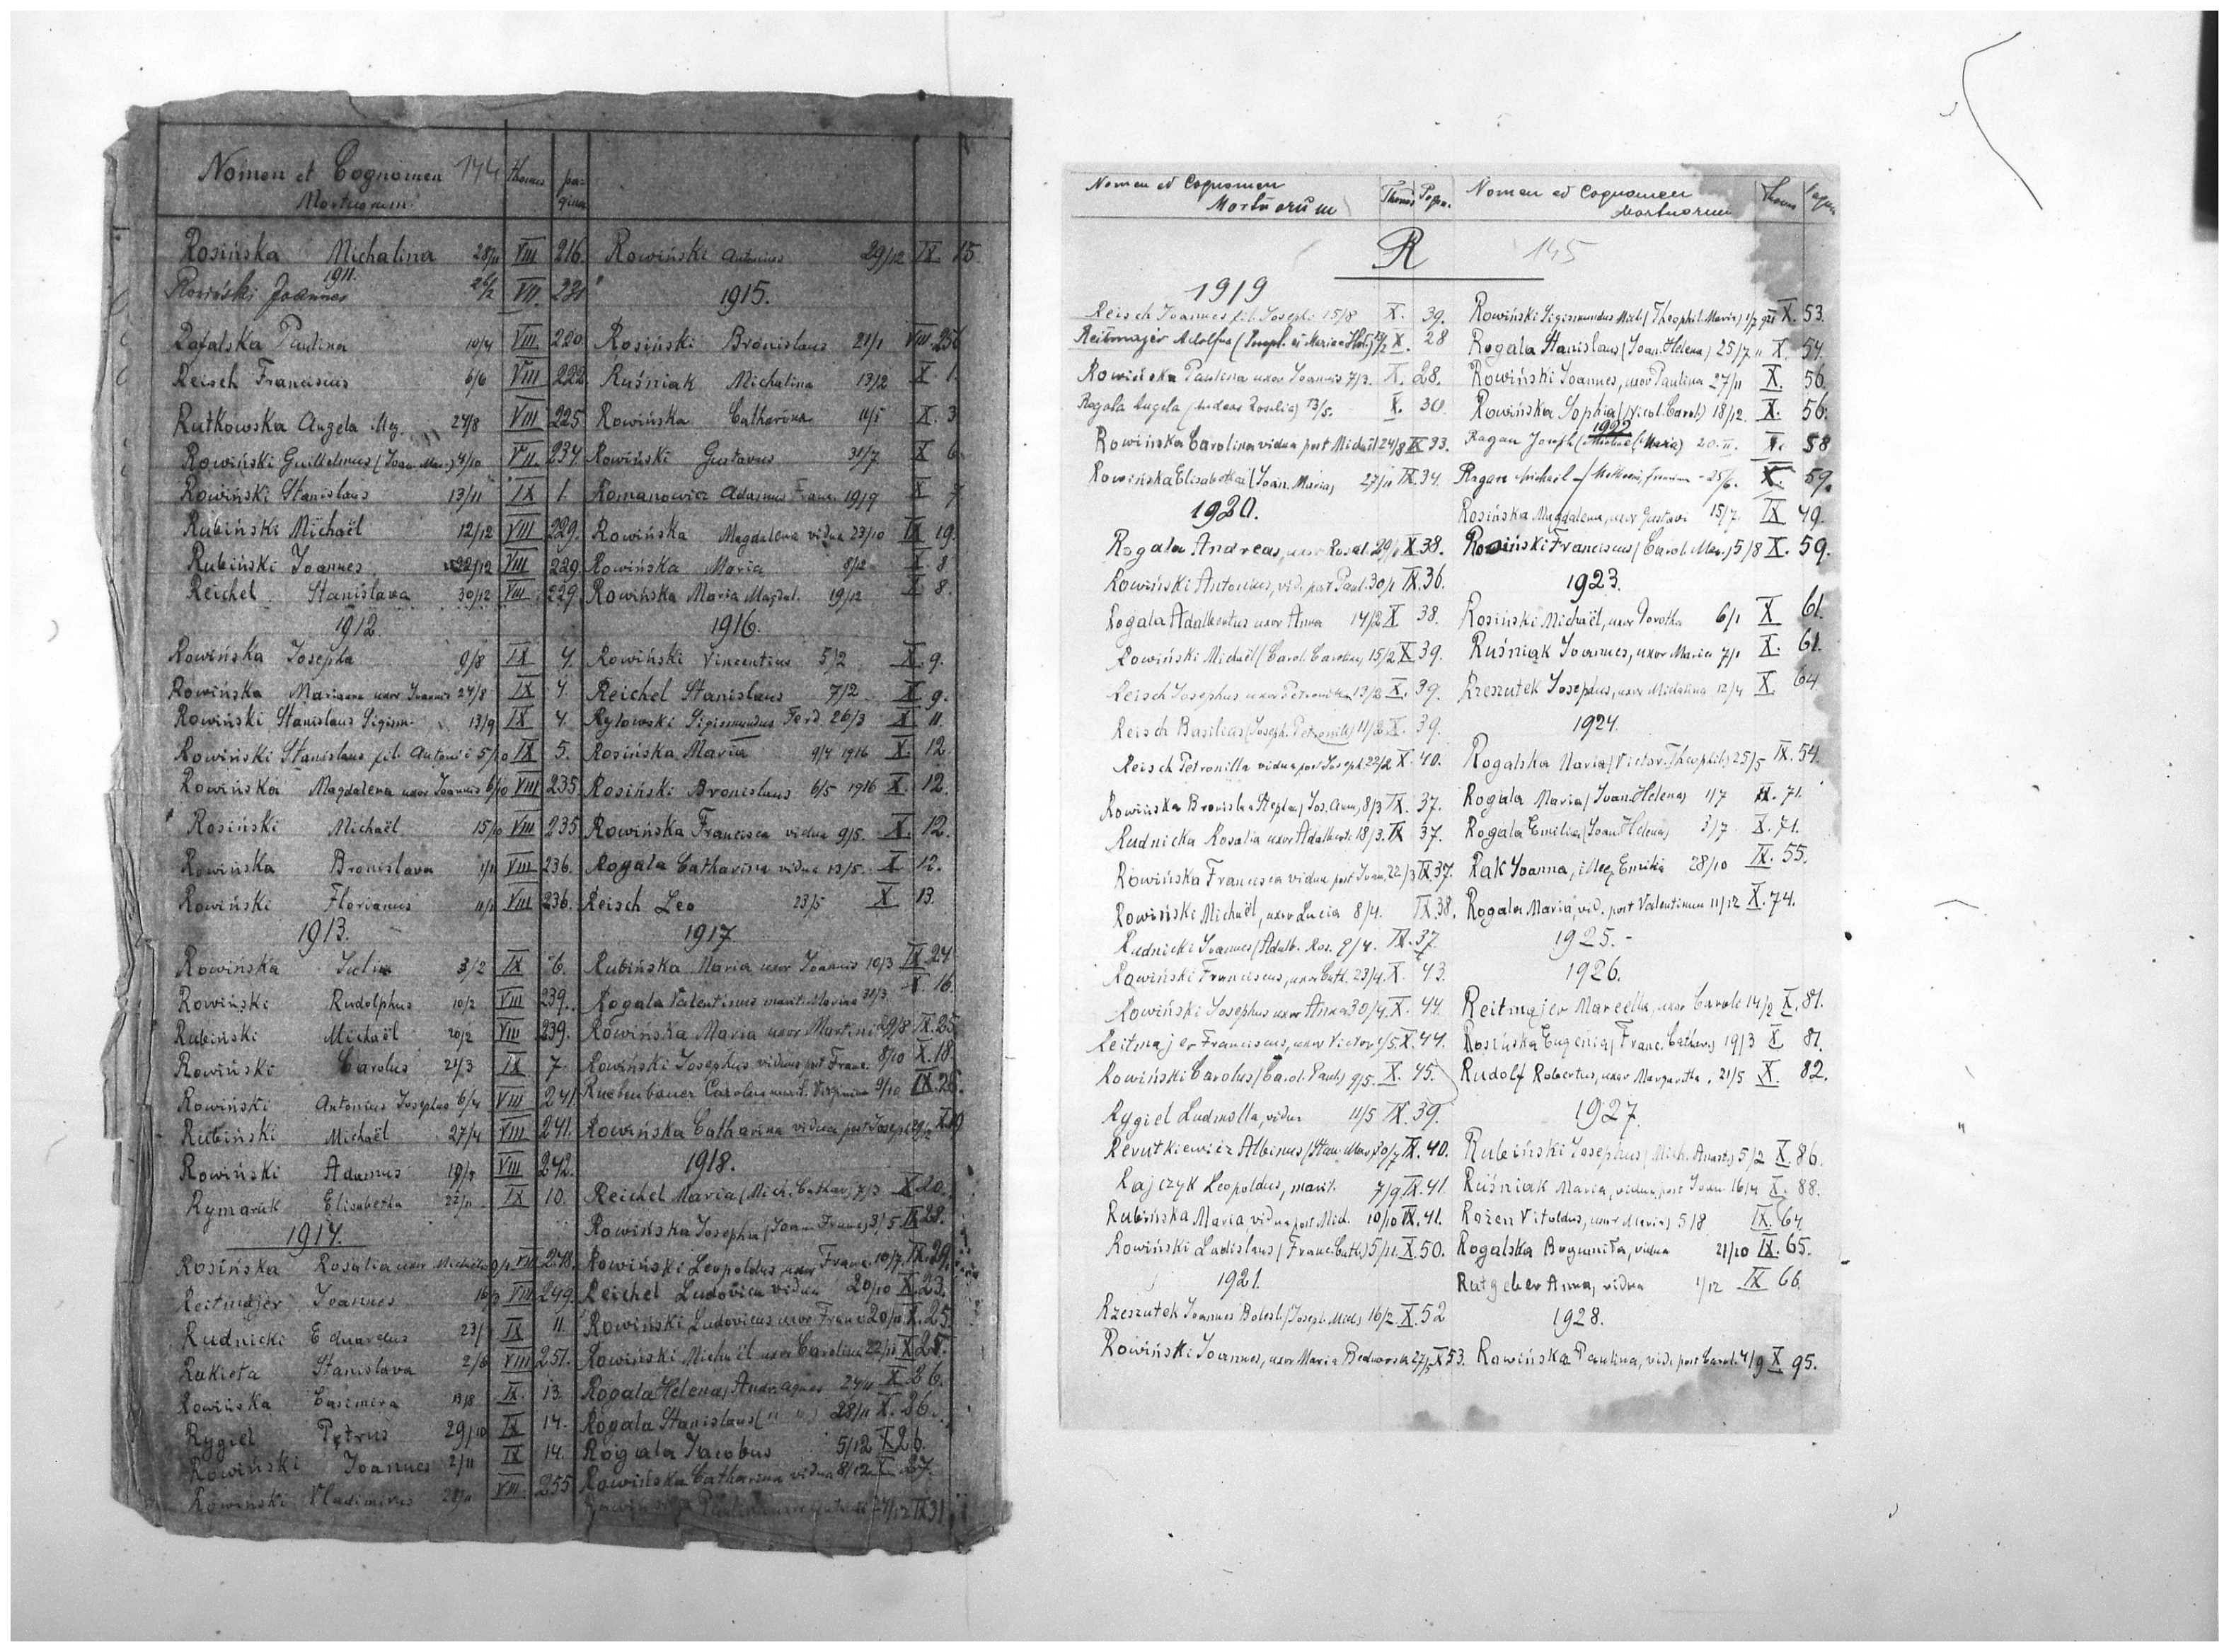 Nomen et Cognomen 144 thomus pa-
Mortuorum gina
Rosińska Michalina 28/11 VIII 216.
1911.
Rowiński Joannes 26/2 VII.
Rafalska Paulina 10/4 VIII. 220
Reisch Franciscus 6/6 VIII 222
Rutkowska Angela 24/8 VIII 225
Rowiński Guillelmus 4/10 VII. 234
Rowiński Stanislaus 13/11 IX 1.
Rubiński Michaël 12/12 VIII 229.
Rubiński Joannes 22/12 VIII 229
Reichel Stanislava 30/12 VIII 229
1912.
Rowińska Josepha 9/8 IX 4.
Rowińska Marianna uxor Joannis 24/8 IX 4.
Rowiński Stanislaus Sigism. 13/9 IX 4.
Rowiński Stanislaus fil. Antonii 5/10 IX 5.
Rowińska Magdalena uxor Joannis 6/10 VIII 235
Rosiński Michaël 15/10 VIII 235
Rowińska Bronislava 1/11 VIII 236.
Rowiński Florianus 11/11 VIII 236.
1913.
Rowińska Julia 3/2 IX 6.
Rowiński Rudolphus 10/2 VIII 239.
Rubiński Michaël 20/2 VIII 239.
Rowiński Carolus 21/3 IX 7
Rowiński Antonius Josephus 6/4 VIII 241
Rubiński Michaël 27/4 VIII 241.
Rowiński Adamus VIII 242.
Rymarik Elisabetha 22/11 IX 10.
1914.
Rosińska Rosalia uxor Michaëlis VIII 248.
Reitmajer Joannes VIII 249.
Rudnicki Eduardus IX 11
Rakieta Stanislava 2/6 VIII 251.
Rowińska Casimira 13/8 IX. 13.
Rygiel Petrus 29/10 IX 14.
Rowiński Joannes 2/11 IX 14.
Rowiński Vladimirus VIII. 255
Rowiński Antonius 29/12 IX 15.
1915.
Rosiński Bronislaus 21/1 VIII 256
Ruśniak Michalina 13/2 X 1.
Rowińska Catharina X. 3
Rowiński Gustavus 31/7 X 6
Romanowicz Adamus Franc. 19/9 X 7
Rowińska Magdalena vidua 23/10 IX 19.
Rowińska Maria 8/12 X. 8
Rowińska Maria Magdal. 19/12 X 8.
1916.
Rowiński Vincentius 5/2 X. 9.
Reichel Stanislaus 7/2 X 9.
Rylowski Sigismundus Ferd. 26/3 X. 11.
Rosińska Maria 9/4 1916 X. 12.
Rosiński Bronislaus 6/5 1916 X. 12.
Rowińska Francisca vidua 9/5. X. 12.
Rogala Catharina vidua 13/5. X 12.
Reisch Leo 23/5 X 13.
1917
Rubińska Maria uxor Joannis 10/3 IX 24
Rogala Valentinus marit. 31/3. X 16.
Rowińska Maria uxor Martini 29/8 IX. 25
Rowiński Josephus viduus post Franc. 8/10 X. 18.
Ruebenbauer Carolus marit. Virginiae 9/10 IX
Rowińska Catharina vidua post Joseph
1918.
Reichel Maria (Mich. Cathar.) 7/3 X 20.
Rowińska Josepha (Joan. Franc.) 3/5 IX 28.
Rowiński Leopoldus uxor Franc. 10/7. IX. 29.
Reichel Ludovica vidua 20/10 X 23.
Rowiński Ludovicus uxor Franc. 20/11 X. 25
Rowiński Michaël uxor Carolina 22/11 X 25.
Rogala Helena Andr. Agnes 24/11 X 26.
Rogala Stanislaus (" ") 28/11 X. 26.
Rogala Jacobus 5/12 X 26.
Rowińska Catharina vidua 8/12 X 27.
IX 31
Nomen et Cognomen Thomus Pagin.
Mortuorum
Nomen et Cognomen Thomus Pagina
Mortuorum
R 145
1919
Reisch Joannes fil. Josephi 15/8 X. 39.
Reitmajer Adolfus X. 28
Rowińska Paulina uxor Joannis 7/3. X. 28.
Rogala Angela (Andreas Rosalia) 13/5. X. 30
Rowińska Carolina vidua post Michaël 24/8 IX 33.
Rowińska Elisabetha (Joan. Maria) 27/11 IX. 34.
1920.
Rogala Andreas, uxor Rosal. 29/1 X 38.
Rowiński Antonius, vid. post Paul. 30/1 IX. 36.
Rogala Adalbertus uxor Anna 14/2 X 38.
Rowiński Michaël (Carol. Carolina) 15/2 X 39.
Reisch Josephus uxor Petronilla 13/2 X. 39.
Reisch Basilius (Joseph. Petronilla) 11/2 X. 39.
Reisch Petronilla vidua post Joseph 22/2 X. 40.
Rowińska Bronisla Steph. (Jos. Anna) 8/3 IX. 37.
Rudnicka Rosalia uxor Adalberti 18/3. IX 37.
Rowińska Francisca vidua post Joan. 22/3 IX. 37.
Rowiński Michaël, uxor Lucia 8/4. IX 38.
Rudnicki Joannes (Adalb. Ros. 9/4. IX. 37
Rowiński Franciscus, uxor Cath. 23/4. X. 43.
Rowiński Josephus uxor Anna 30/4. X. 44.
Reitmajer Franciscus, uxor Victor. 1/5. X. 44.
Rowiński Carolus (Carol. Paul.) 9/5. X. 45.
Rygiel Ludmolla, vidua 11/5 IX. 39.
Revutkiewicz Albinus (Stan. Mar.) 30/7 IX. 40.
Rajczyk Leopoldus, marit. 7/9 IX. 41.
Rubińska Maria, vidua post Mich. 10/10 IX. 41.
Rowiński Ladislaus (Franc. Cath.) 5/11. X. 50.
1921.
Rzeszutek Joannes Bolesl. (Joseph. Mich.) 16/2. X. 52
Rowiński Joannes, uxor Maria Bednarska 27/5 X 53.
Rowiński Sigismundus Mich. (Theophil. Maria) 1/7 X. 53.
Rogala Stanislaus (Joan. Helena) 25/7 X. 54.
Rowiński Joannes, uxor Paulina 27/11 X. 56.
Rowińska Sophia (Nicol. Carol.) 18/12. X. 56.
1922
Ragan Joseph (Michael, Maria) 20.II. X. 58
Ragan Michaël 25/6. X. 59.
Rosińska Magdalena, uxor Gustavi 15/7. IX 49.
Rosiński Franciscus (Carol. Mar.) 5/8 X. 59.
1923.
Rosiński Michaël, uxor Dorotha 6/1 X 61.
Ruśniak Joannes, uxor Maria 7/1 X. 61.
Rzeszutek Josephus, uxor Michalina 12/4 X. 64
1924.
Rogalska Maria (Victor. Theophil.) 25/5 IX. 54.
Rogala Maria (Joan. Helena) 1/7 X. 71.
Rogala Emilia (Joan. Helena) 3/7 X. 71.
Rak Joanna, illeg. Emilia 28/10 IX. 55.
Rogala Maria, vid. post Valentinum 11/12 X. 74.
1925. -
1926.
Reitmajer Marcella, uxor Caroli 14/2 X. 81.
Rosińska Eugenia (Franc. Cathar.) 19/3 X 81.
Rudolf Robertus, uxor Margaritha . 21/5 X. 82.
1927.
Rubiński Josephus (Mich. Anast.) 5/2 X. 86.
Ruśniak Maria, vidua, post Joan. 16/4 X. 88.
Rożen Vitoldus, uxor Maria) 5/8 IX. 64
Rogalska Bogumiła, vidua 21/10 IX. 65.
Rutgeber Anna, vidua 1/12 IX 66.
1928.
Rowińska Paulina, vid. post Carol. 4/9 X 95.